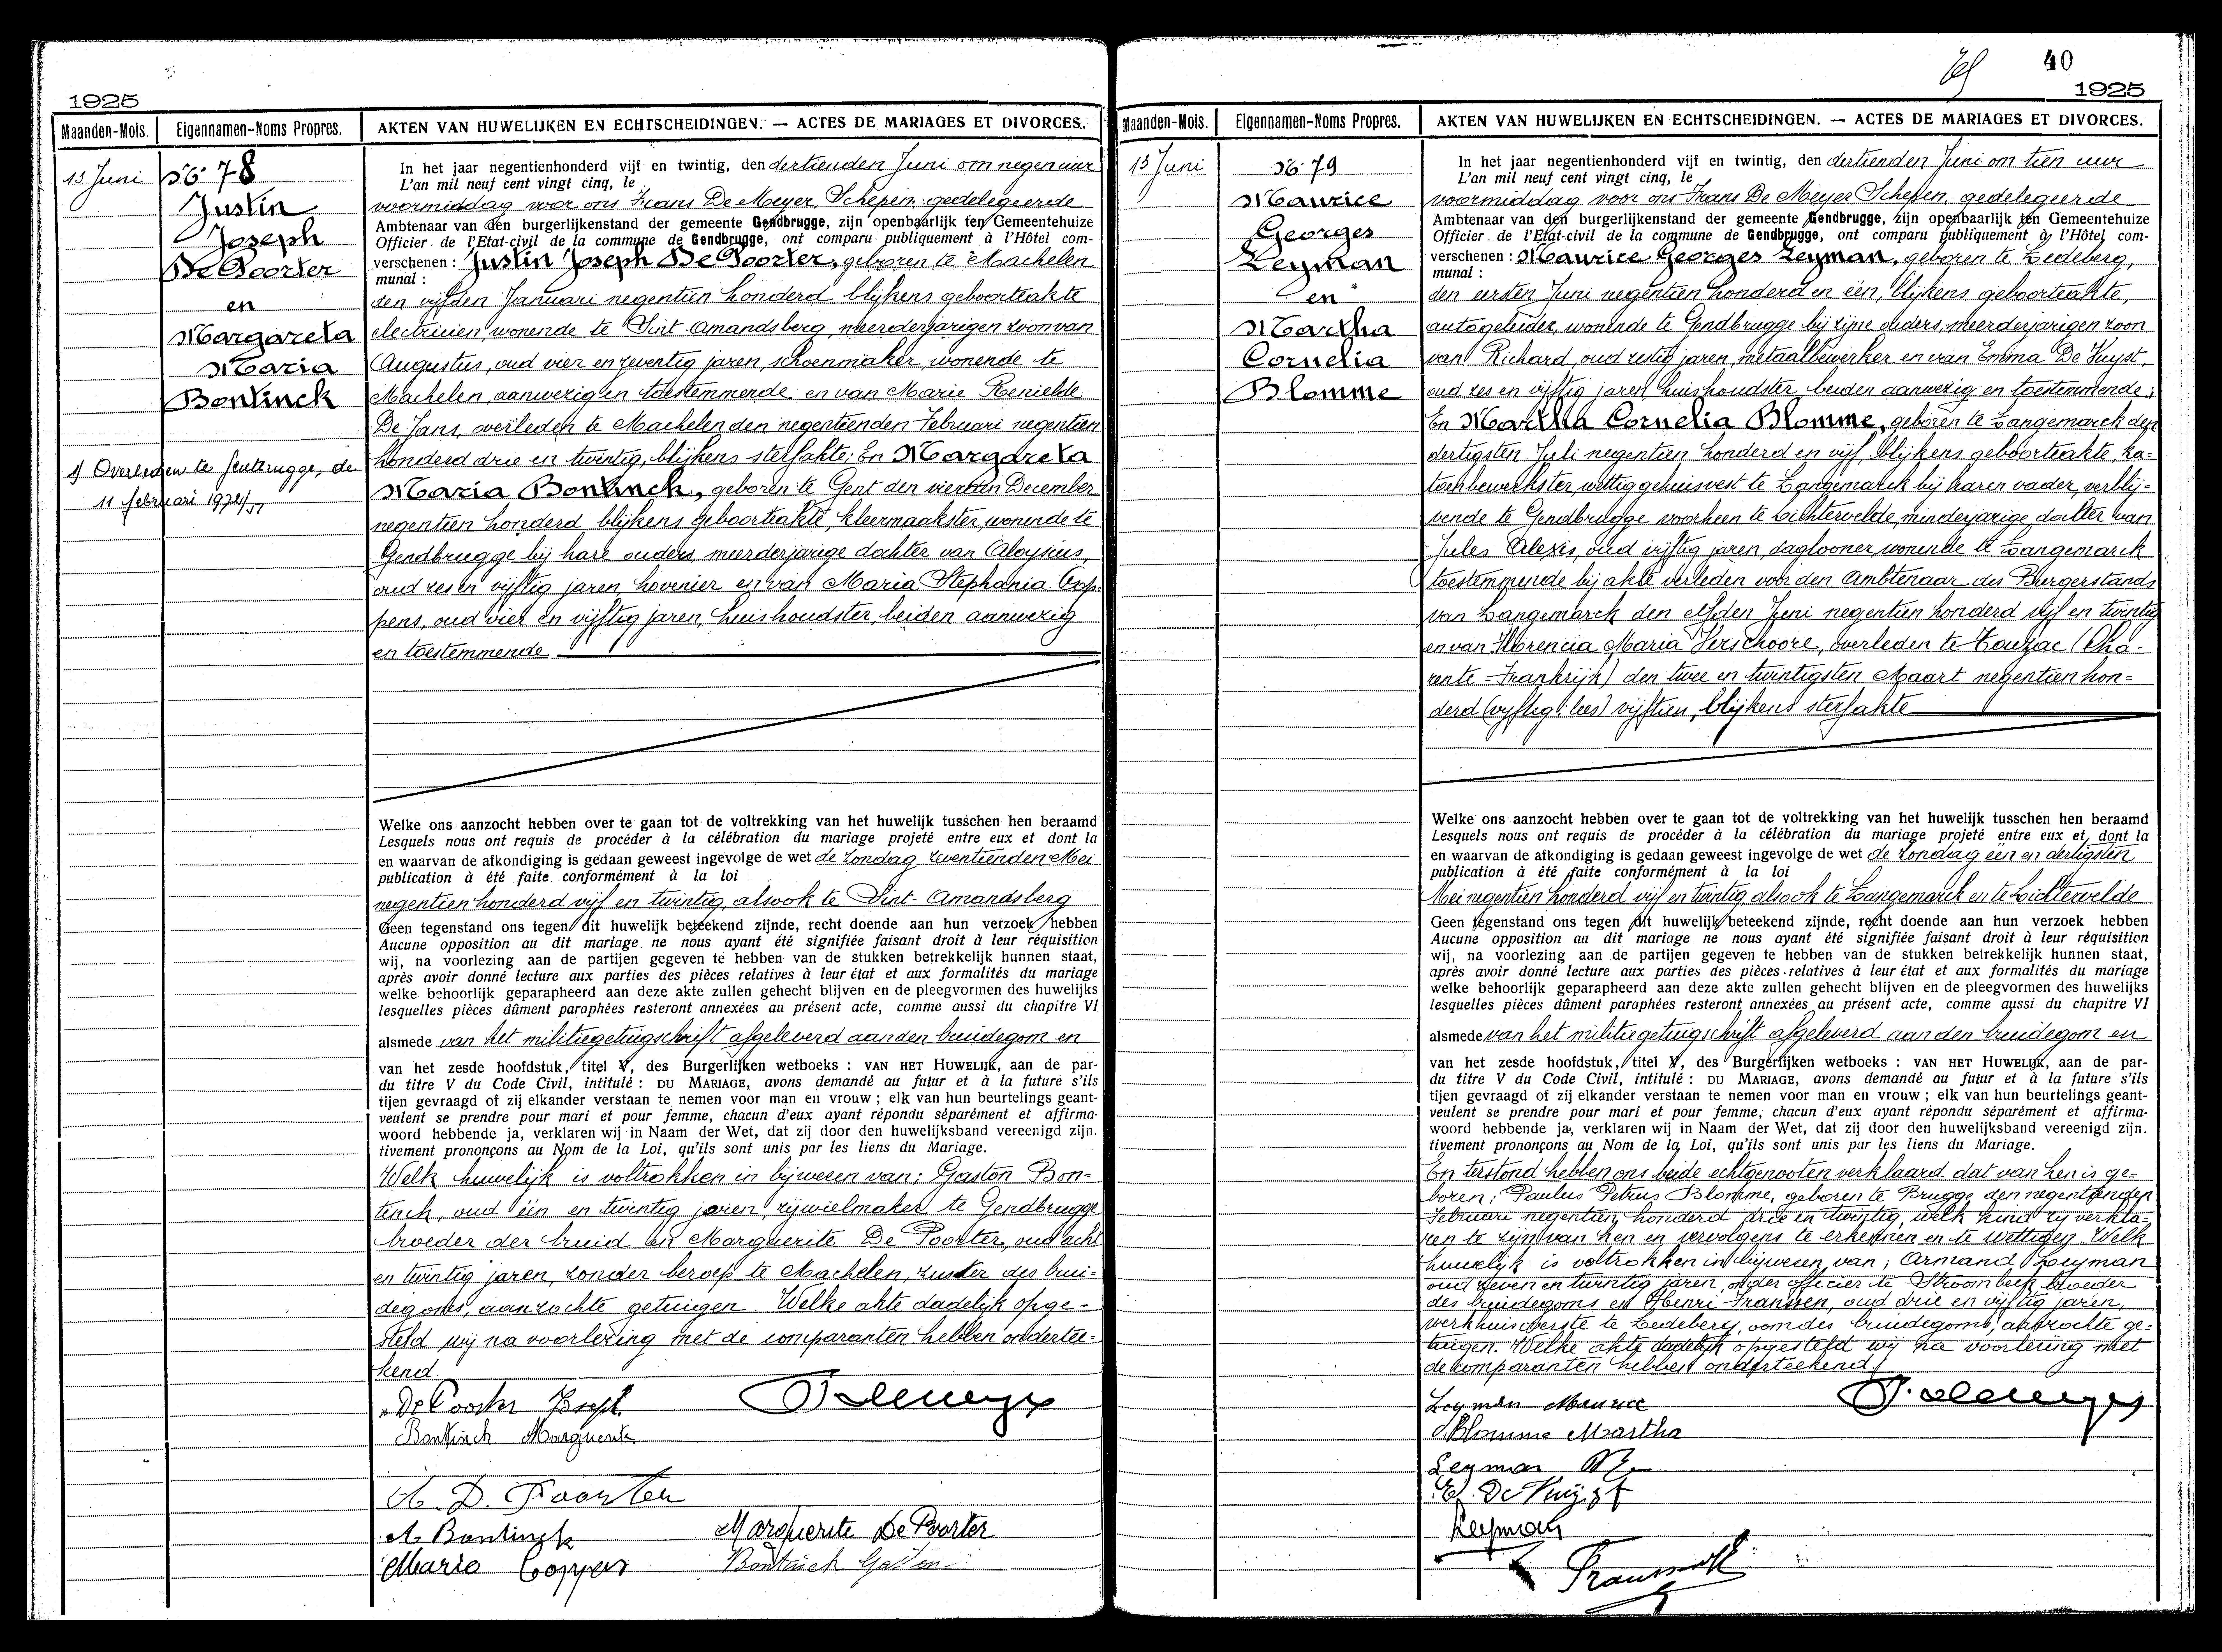 1925
Maanden-Mois. Eigennamen-Noms Propres. AKTEN VAN HUWELIJKEN EN ECHTSCHEIDINGEN. — ACTES DE MARIAGES ET DIVORCES.
13 Juni
No 78
Justin
Joseph
De Poorter
en
Margareta
Maria
Bontinck
Overleden te Gentbrugge, de
11 februari 1972
In het jaar negentienhonderd vijf en twintig, den dertienden Juni om negen uur
L'an mil neuf cent vingt cinq, le
voormiddag voor ons Frans De Meyer, Schepen, gedelegeerde
Ambtenaar van den burgerlijkenstand der gemeente Gendbrugge, zijn openbaarlijk ten Gemeentehuize
Officier de l'Etat-civil de la commune de Gendbrugge, ont comparu publiquement à l'Hôtel com-
verschenen : Justin Joseph De Poorter, geboren te Machelen
munal :
den vijfden Januari negentien honderd blijkens geboorteakte
electricien wonende te Sint Amandsberg, meerderjarigen zoon van
Augustus, oud vier en zeventig jaren, schoenmaker, wonende te
Machelen, aanwezig en toestemmende en van Marie Renielde
De Jans, overleden te Machelen den negentienden Februari negentien
honderd drie en twintig, blijkens sterfakte; En Margareta
Maria Bontinck, geboren te Gent den vierden December
negentien honderd blijkens geboorteakte, kleermaakster, wonende te
Gendbrugge bij hare ouders, meerderjarige dochter van Aloysius
oud zes en vijftig jaren, hovenier en van Maria Stephania Cop-
pens, oud vier en vijftig jaren, huishoudster, beiden aanwezig
en toestemmende
Welke ons aanzocht hebben over te gaan tot de voltrekking van het huwelijk tusschen hen beraamd
Lesquels nous ont requis de procéder à la célébration du mariage projeté entre eux et dont la
en waarvan de afkondiging is gedaan geweest ingevolge de wet de zondag zeventienden Mei
publication à été faite conformément à la loi
negentien honderd vijf en twintig, alsook te Sint-Amandsberg
Geen tegenstand ons tegen dit huwelijk beteekend zijnde, recht doende aan hun verzoek hebben
Aucune opposition au dit mariage ne nous ayant été signifiée faisant droit à leur réquisition
wij, na voorlezing aan de partijen gegeven te hebben van de stukken betrekkelijk hunnen staat,
après avoir donné lecture aux parties des pièces relatives à leur état et aux formalités du mariage
welke behoorlijk geparapheerd aan deze akte zullen gehecht blijven en de pleegvormen des huwelijks
lesquelles pièces dûment paraphées resteront annexées au présent acte, comme aussi du chapitre VI
alsmede van het militiegetuigschrift afgeleverd aan den bruidegom en
van het zesde hoofdstuk, titel V, des Burgerlijken wetboeks : VAN HET HUWELIJK, aan de par-
du titre V du Code Civil, intitulé : DU MARIAGE, avons demandé au futur et à la future s'ils
tijen gevraagd of zij elkander verstaan te nemen voor man en vrouw ; elk van hun beurtelings geant-
veulent se prendre pour mari et pour femme, chacun d'eux ayant répondu séparément et affirma-
woord hebbende ja, verklaren wij in Naam der Wet, dat zij door den huwelijksband vereenigd zijn.
tivement prononçons au Nom de la Loi, qu'ils sont unis par les liens du Mariage.
Welk huwelijk is voltrokken in bijwezen van; Gaston Bon-
tinck, oud één en twintig jaren, rijwielmaker te Gendbrugge
broeder der bruid en Marguerite De Poorter, oud acht
en twintig jaren, zonder beroep te Machelen, zuster des brui-
degoms, aanzochte getuigen. Welke akte dadelijk opge-
steld wij na voorlezing met de comparanten hebben ondertee-
kend.
De Poorter Joseph F. De Meyer
Bontinck Marguerite
A. D. Poorter
A. Bontinck Marguerite De Poorter
Maria Coppens Bontinck Gaston
40
1925
Maanden-Mois. Eigennamen-Noms Propres. AKTEN VAN HUWELIJKEN EN ECHTSCHEIDINGEN. — ACTES DE MARIAGES ET DIVORCES.
13 Juni
No 79
Maurice
Georges
Leyman
en
Martha
Cornelia
Blomme
In het jaar negentienhonderd vijf en twintig, den dertienden Juni om tien uur
L'an mil neuf cent vingt cinq, le
voormiddag voor ons Frans De Meyer Schepen, gedelegeerde
Ambtenaar van den burgerlijkenstand der gemeente Gendbrugge, zijn openbaarlijk ten Gemeentehuize
Officier de l'Etat-civil de la commune de Gendbrugge, ont comparu publiquement à l'Hôtel com-
verschenen : Maurice Georges Leyman, geboren te Ledeberg,
munal :
den eersten Juni negentien honderd en één, blijkens geboorteakte,
autogeleider, wonende te Gendbrugge bij zijne ouders, meerderjarigen zoon
van Richard, oud zestig jaren, metaalbewerker en van Emma De Kuyst,
oud zes en vijftig jaren, huishoudster beiden aanwezig en toestemmende;
En Martha Cornelia Blomme, geboren te Langemarck den
dertigsten Juli negentien honderd en vijf, blijkens geboorteakte, ka-
toenbewerkster, wettig gehuisvest te Langemarck bij haren vader, verblij-
vende te Gendbrugge voorheen te Lichtervelde, minderjarige dochter van
Jules Alexis, oud vijftig jaren, daglooner wonende te Langemarck
toestemmende bij akte verleden voor den Ambtenaar des Burgerstands
van Langemarck den elfden Juni negentien honderd vijf en twintig
en van Florencia Maria Verschoore, overleden te Touzac (Cha-
rente - Frankrijk) den twee en twintigsten Maart negentien hon-
derd (vijftig: lees) vijftien, blijkens sterfakte
Welke ons aanzocht hebben over te gaan tot de voltrekking van het huwelijk tusschen hen beraamd
Lesquels nous ont requis de procéder à la célébration du mariage projeté entre eux et dont la
en waarvan de afkondiging is gedaan geweest ingevolge de wet de zondag één en dertigsten
publication à été faite conformément à la loi
Mei negentien honderd vijf en twintig alsook te Langemarck en te Lichtervelde
Geen tegenstand ons tegen dit huwelijk beteekend zijnde, recht doende aan hun verzoek hebben
Aucune opposition au dit mariage ne nous ayant été signifiée faisant droit à leur réquisition
wij, na voorlezing aan de partijen gegeven te hebben van de stukken betrekkelijk hunnen staat,
après avoir donné lecture aux parties des pièces relatives à leur état et aux formalités du mariage
welke behoorlijk geparapheerd aan deze akte zullen gehecht blijven en de pleegvormen des huwelijks
lesquelles pièces dûment paraphées resteront annexées au présent acte, comme aussi du chapitre VI
alsmede van het militiegetuigschrift afgeleverd aan den bruidegom en
van het zesde hoofdstuk, titel V, des Burgerlijken wetboeks : VAN HET HUWELIJK, aan de par-
du titre V du Code Civil, intitulé : DU MARIAGE, avons demandé au futur et à la future s'ils
tijen gevraagd of zij elkander verstaan te nemen voor man en vrouw ; elk van hun beurtelings geant-
veulent se prendre pour mari et pour femme, chacun d'eux ayant répondu séparément et affirma-
woord hebbende ja, verklaren wij in Naam der Wet, dat zij door den huwelijksband vereenigd zijn.
tivement prononçons au Nom de la Loi, qu'ils sont unis par les liens du Mariage.
En terstond hebben ons beide echtgenooten verklaard dat van hen is ge-
boren; Paulus Petrus Blomme, geboren te Brugge den negentienden
Februari negentien honderd drie en twintig, welk kind zij verkla-
ren te zijn van hen en vervolgens te erkennen en te wettigen. Welk
huwelijk is voltrokken in bijwezen van; Armand Leyman
oud zeven en twintig jaren, onder officier te Stroombeek, broeder
des bruidegoms en Henri Franssen, oud drie en vijftig jaren,
werkhuisoverste te Ledeberg, oom des bruidegoms, aanzochte ge-
tuigen. Welke akte dadelijk opgesteld wij na voorlezing met
de comparanten hebben onderteekend.
Leyman Maurice F. De Meyer
Blomme Martha
Leyman
E. De Kuyst
Leyman